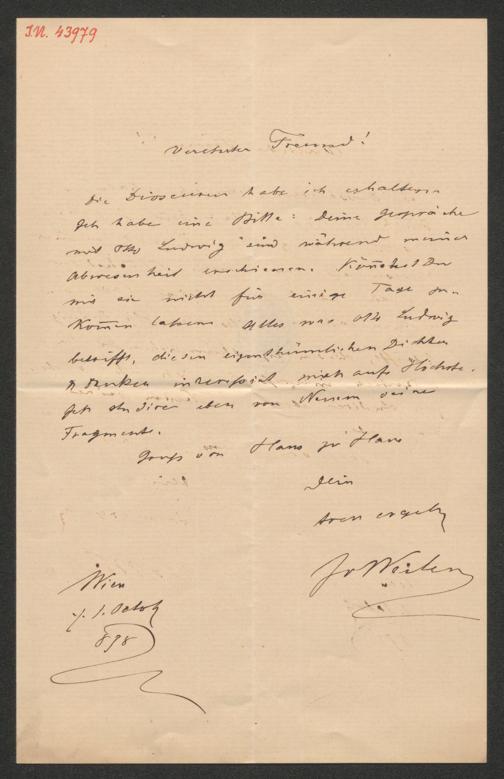 I.N. 43979
Verehrter Freund!
Die Dioscuren habe ich erhalten.
Ich habe eine Bitte: Deine Gespräche
mit Otto Ludwig sind während meiner
Abwesenheit erschienen. Könntest Du
mir sie nicht für einige Tage zu-
kommen lassen. Alles was Otto Ludwig
betrifft, diesen eigenthümlichen Dichter
Denker interessirt mich aufs Höchste.
Ich studire eben von Neuem seine
Fragmente.
Gruß von Haus zu Haus
Dein
treu ergeb
Jv Weilen
Wien
898